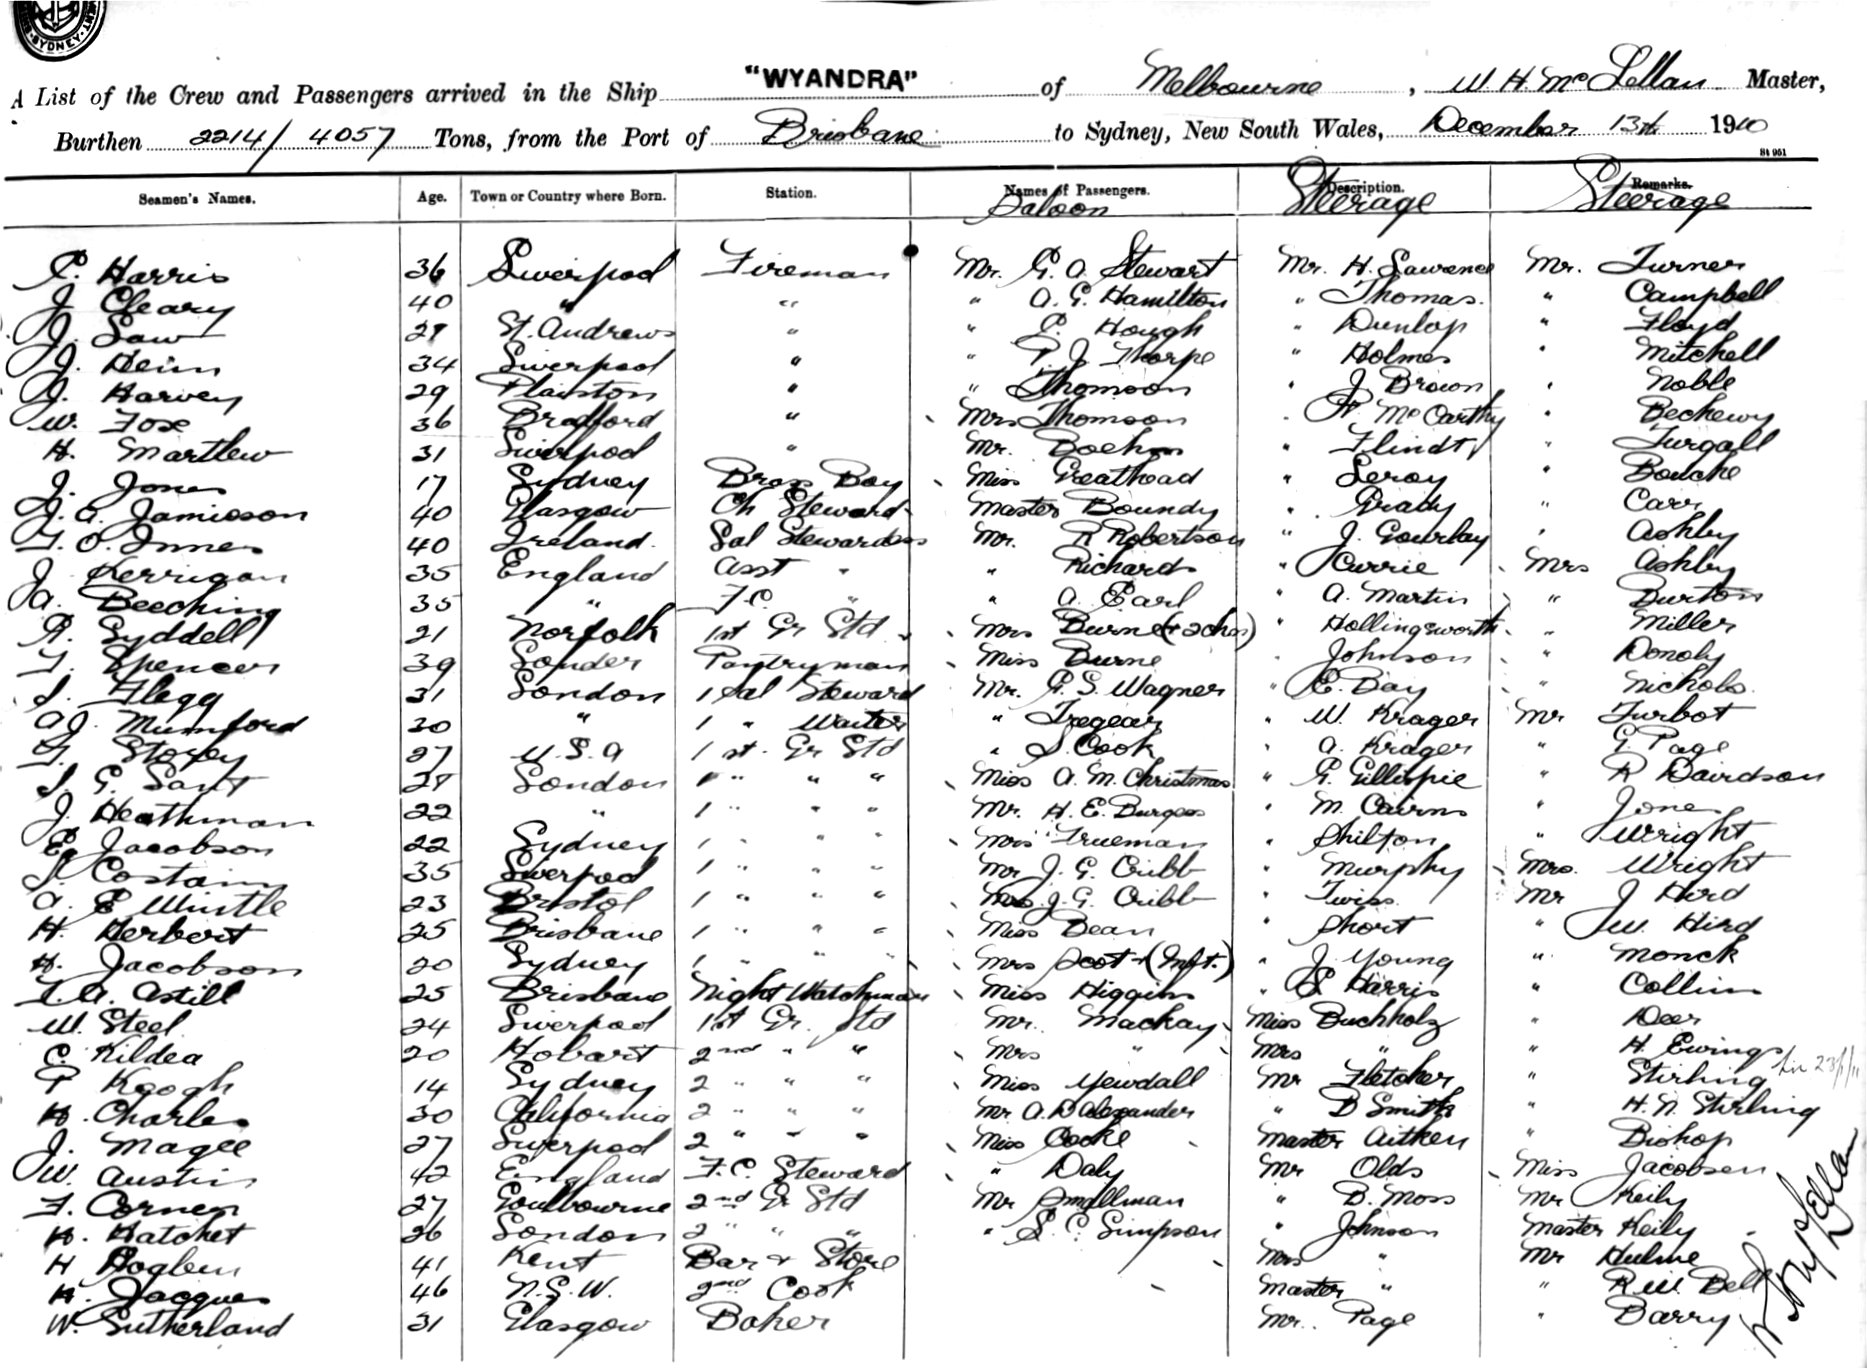 SYDNEY
A List of the Crew and Passengers arrived in the Ship "WYANDRA" of Melbourne, W. H. McLellan Master,
Burthen 2214/4057 Tons, from the Port of Brisbane to Sydney, New South Wales, December 13th 1910
St 951
Seamen's Names. Age. Town or Country where Born. Station. Names of Passengers. Description. Remarks.
Saloon Steerage Steerage
P. Harris 36 Liverpool Fireman Mr. G. A. Stewart Mr. H. Lawrence Mr. Turner
J. Cleary 40 " " " A. G. Hamilton " Thomas. " Campbell
J. Law 29 St. Andrews " " Hough " Dunlop " Floyd
J. 34 Liverpool " " P. J. Thorpe " Holmes " Mitchell
J. Harvey 29 Plaiston " " Thomson " J Brown " Noble
W. Fox 36 Bradford " Mrs Thomson " McCarthy "
H. Martlew 31 Liverpool " Mr. Boehm " Flindt "
J. Jones 17 Sydney Brass Boy Miss Greathead " Leroy " Bouche
J. A. Jamieson 40 Glasgow Ch Steward Master Boundy " Grady " Carr
T. O. Innes 40 Ireland. Sal Stewardess Mr. R Robertson " J. Gourlay " Ashby
J Kerrigan 35 England Asst " " Richards " Currie Mrs Ashby
A. Beeching 35 " F.C. " " A. Earl " A. Martin " Burton
R. Lyddell 21 Norfolk 1st Gr Std Mrs Burne (+ 2 chn) " Hollingsworth " Miller
T. Spencer 39 Pantryman Miss Burne " Johnson " Donoly
J. Flegg 31 London 1 Sal Steward Mr. G. S. Wagner " E. Day " Nichols.
A J. Mumford 30 " 1 " Waiter " Tregear " W. Krager Mr Turbot
T. Storey 27 U.S.A 1 st. Gr Std " S. Cook " A. Krager " G. Page
J. G. Sant 29 London 1 " " " Miss A. M. Christmas " G. Gillispie " R Davidson
J. Heathman 22 " 1 " " " Mr. H. E. Burgess " M. Cairns " Jones
E. Jacobson 22 Sydney 1 " " " Mrs Trueman " Shilton " Wright
J. Costain 35 Liverpool 1 " " " Mr J. G. Cribb " Murphy Mrs. Wright
A. E Whistle 23 Bristol 1 " " " Mrs. J. G. Cribb " Twiss. Mr J Hird
H. Herbert 25 Brisbane 1 " " " Miss Dean " Short " W. Hird
H. Jacobson 20 Sydney 1 " " " Mrs Scott + (Inft.) " J. Young " Monck
T. A. Astill 25 Brisbane Night Watchman Miss Higgins " S Harris " Collins
W. Steel 24 Liverpool 1st Gr. Std Mr. Mackay Miss Buchholz " Deer
C. Kildea 20 Hobart 2nd " " Mrs " Mrs " " H. Ewings
P Keogh 14 Sydney 2 " " " Miss Yewdall Mr Fletcher " Stirling
H. Charles 30 California 2 " " " Mr A. D Alexander " D Smith " H. N. Stirling
J. Magee 27 Liverpool 2 " " " Miss Cooke Master Aitken " Bishop
W. Austin 42 England F. C. Steward " Daly Mr Olds Miss Jacobsen
F. Corner 27 Goulbourne 2nd Gr Std Mr Smallman " B. Moss Mr Keily
H. Hatchet 26 London 2 " " " " S. C. Simpson " Johnson Master Keily
H Hogben 41 Kent Bar + Store Mrs " Mr Hulme
H. Jacques 46 N.S.W. 2nd Cook Master " " R. W. Bell
W. Sutherland 31 Glasgow Baker Mr. Page " Barry
W H McLellan